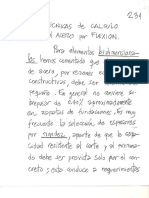 231
TÉCNICAS de CALCULO
EN ACERO por FLEXION.
Para elementos bidimensiona-
les hemos comentado que
de acero, por razones
constructivas, debe ser
pequeña. En general no conviene so-
brepasar de aproximadamente
en zapatas de fundaciones. Es muy
frecuente la selección de espesores
por rigidez, aparte de que la capa-
cidad resistente al corte y al ponzona-
do debe ser provista solo por el con-
creto; esto conduce a requerimientos